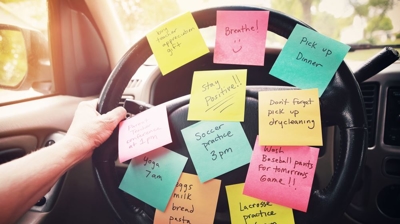 Buy
teacher
appreciation
gift
Breathe!
Pick up
Dinner
Stay
Positive!!
Don't forget
pick up
drycleaning
Soccer
practice
3pm
Wash
Baseball pants
for tomorrows
Game!!!
Yoga
7am
Eggs
milk
bread
pasta
Lacrosse
practice